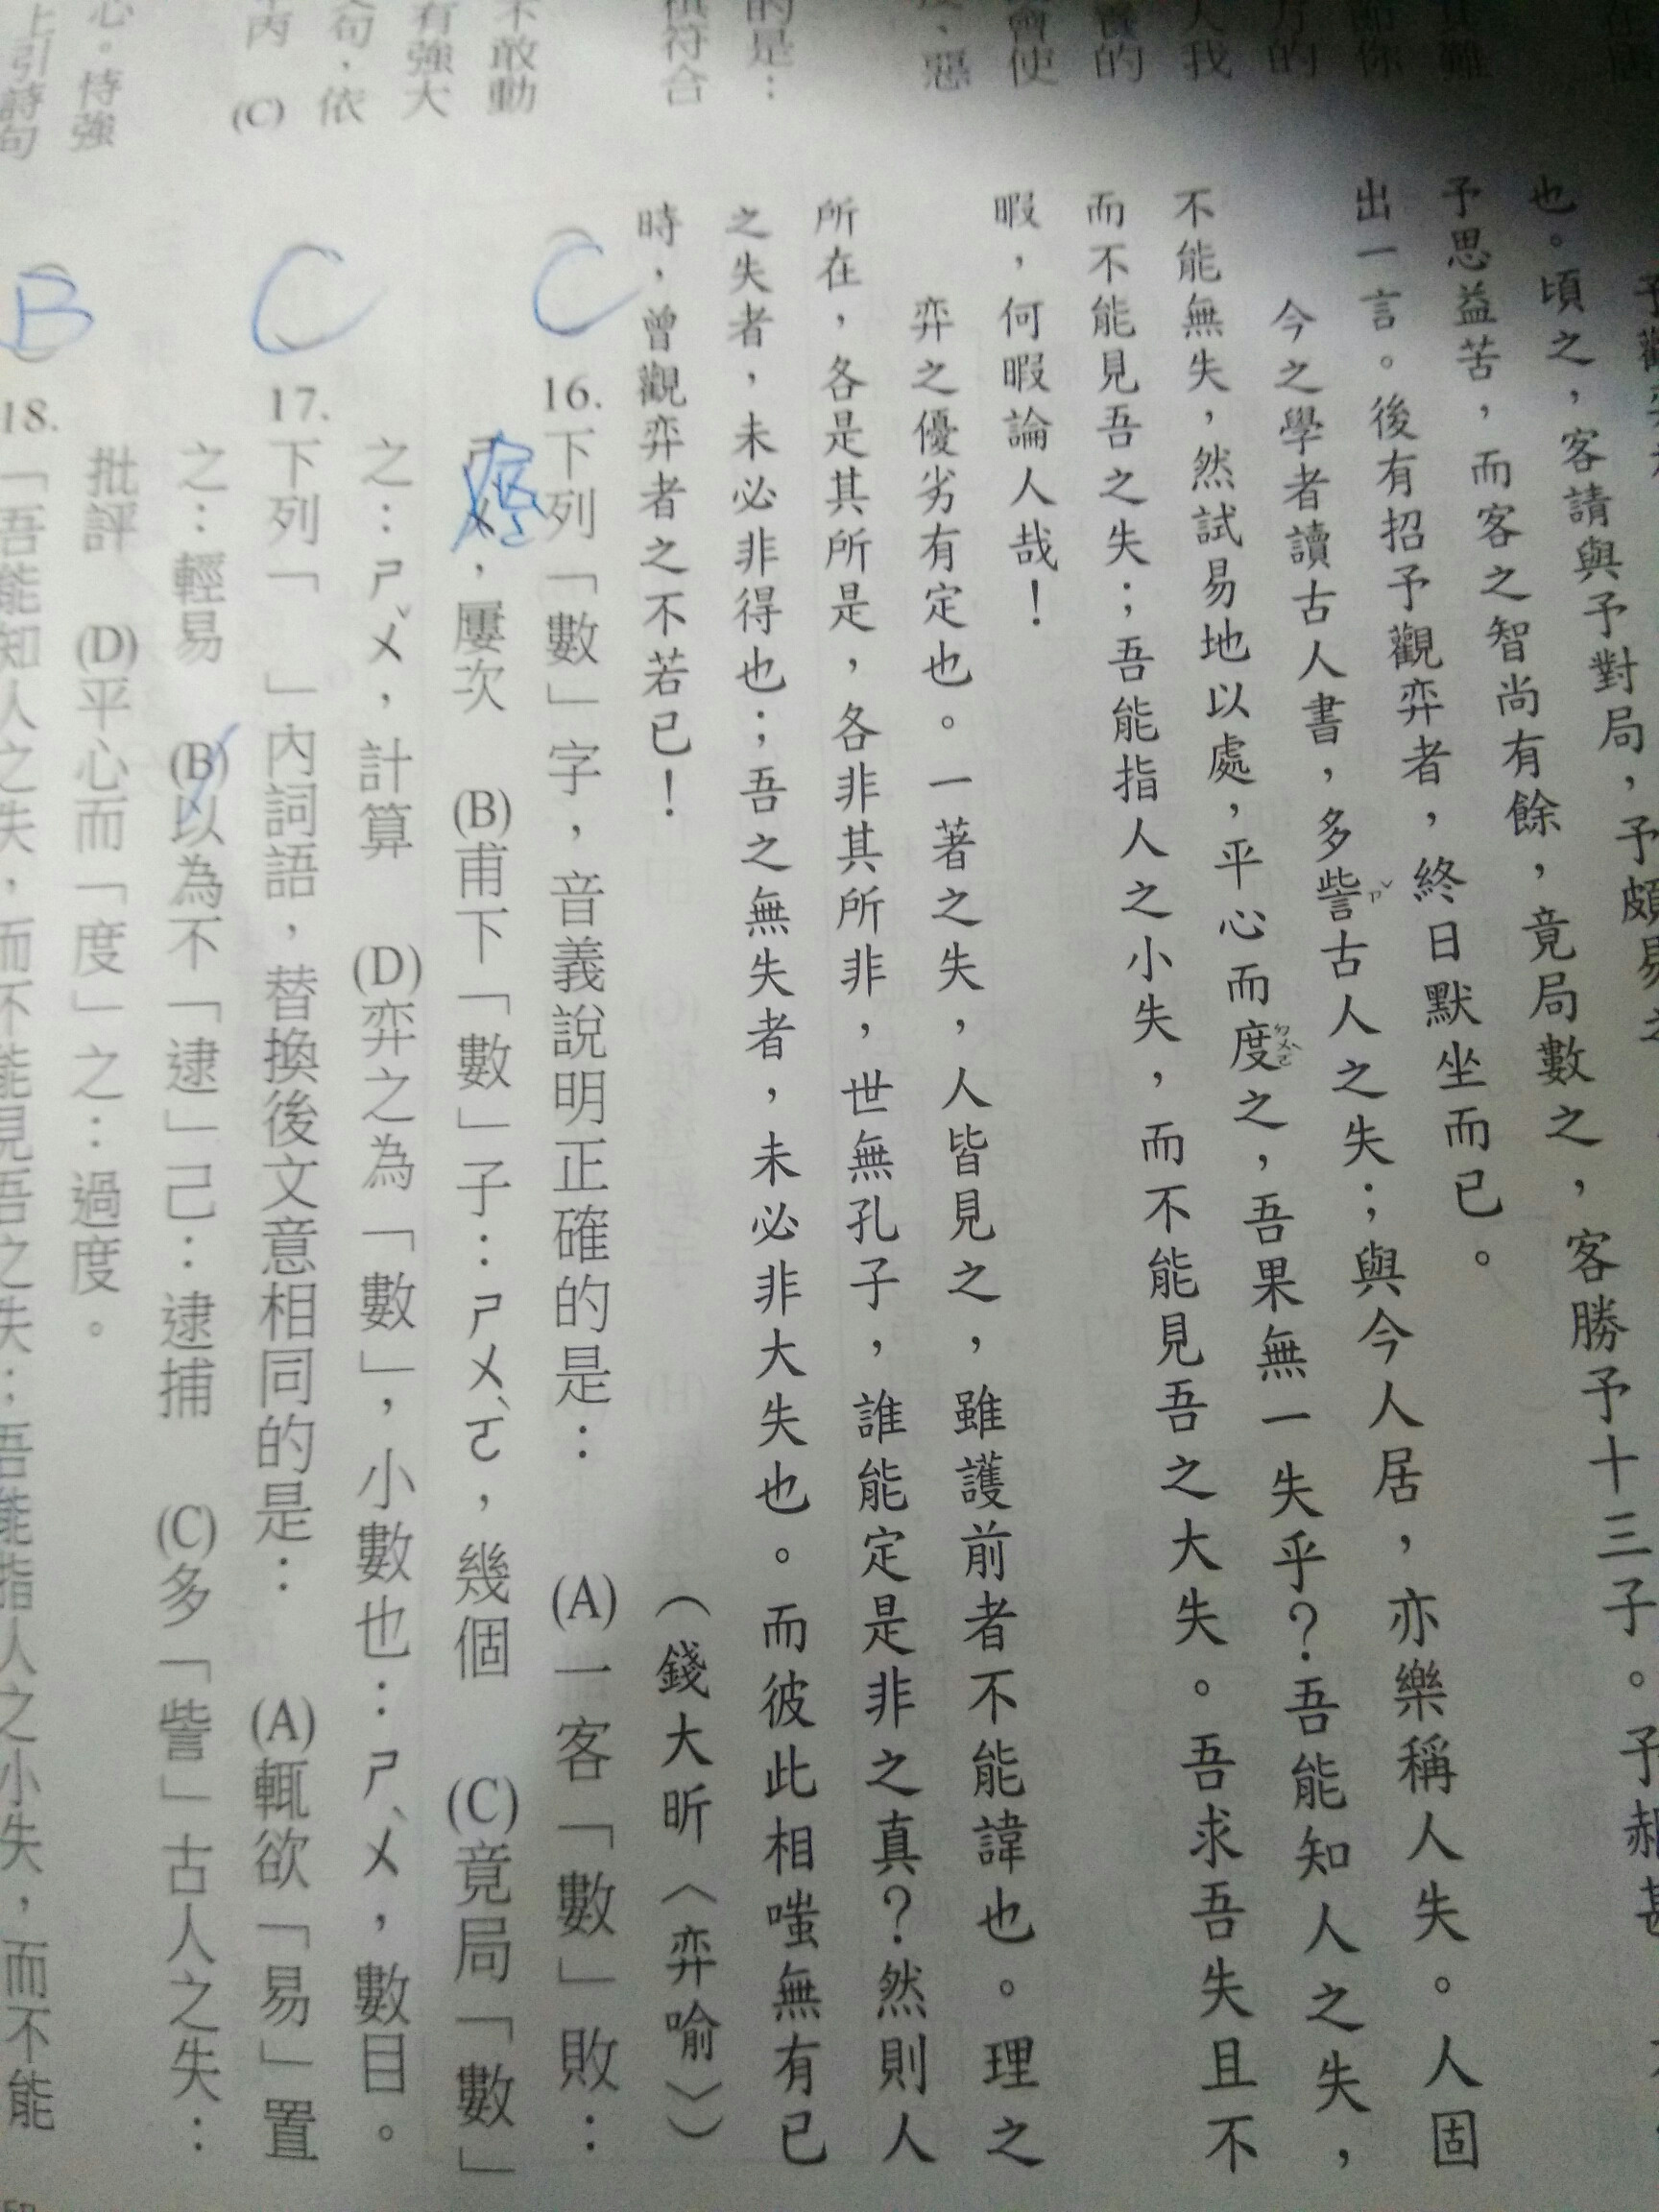 也。頃之，客請與予對局，予頗易
予思益苦，而客之智尚有餘，竟局數之，客勝予十三子。予赧甚
出一言。後有招予觀弈者，終日默坐而已。
今之學者讀古人書，多訾ㄗˇ古人之失；與今人居，亦樂稱人失。人固
不能無失，然試易地以處，平心而度ㄉㄨㄛˋ之，吾果無一失乎？吾能知人之失，
而不能見吾之失；吾能指人之小失，而不能見吾之大失。吾求吾失且不
暇，何暇論人哉！
弈之優劣有定也。一著之失，人皆見之，雖護前者不能諱也。理之
所在，各是其所是，各非其所非，世無孔子，誰能定是非之真？然則人
之失者，未必非得也；吾之無失者，未必非大失也。而彼此相嗤無有已
時，曾觀弈者之不若已！（錢大昕〈弈喻〉）
C 16. 下列「數」字，音義說明正確的是： (A)一客「數」敗：
，屢次 (B)甫下「數」子：ㄕㄨㄛˋ，幾個 (C)竟局「數」
之：ㄕㄨˇ，計算 (D)弈之為「數」，小數也：ㄕㄨˋ，數目。
C 17. 下列「 」內詞語，替換後文意相同的是： (A)輒欲「易」置
之：輕易 (B)以為不「逮」己：逮捕 (C)多「訾」古人之失：
批評 (D)平心而「度」之：過度。
B 18. 「吾能知人之失，而不能見吾之失；吾能指人之小失，而不能
不敢動
有強大
句，依
(C)
心。恃強
上引詩句
的是：
符合
會使
的
人我